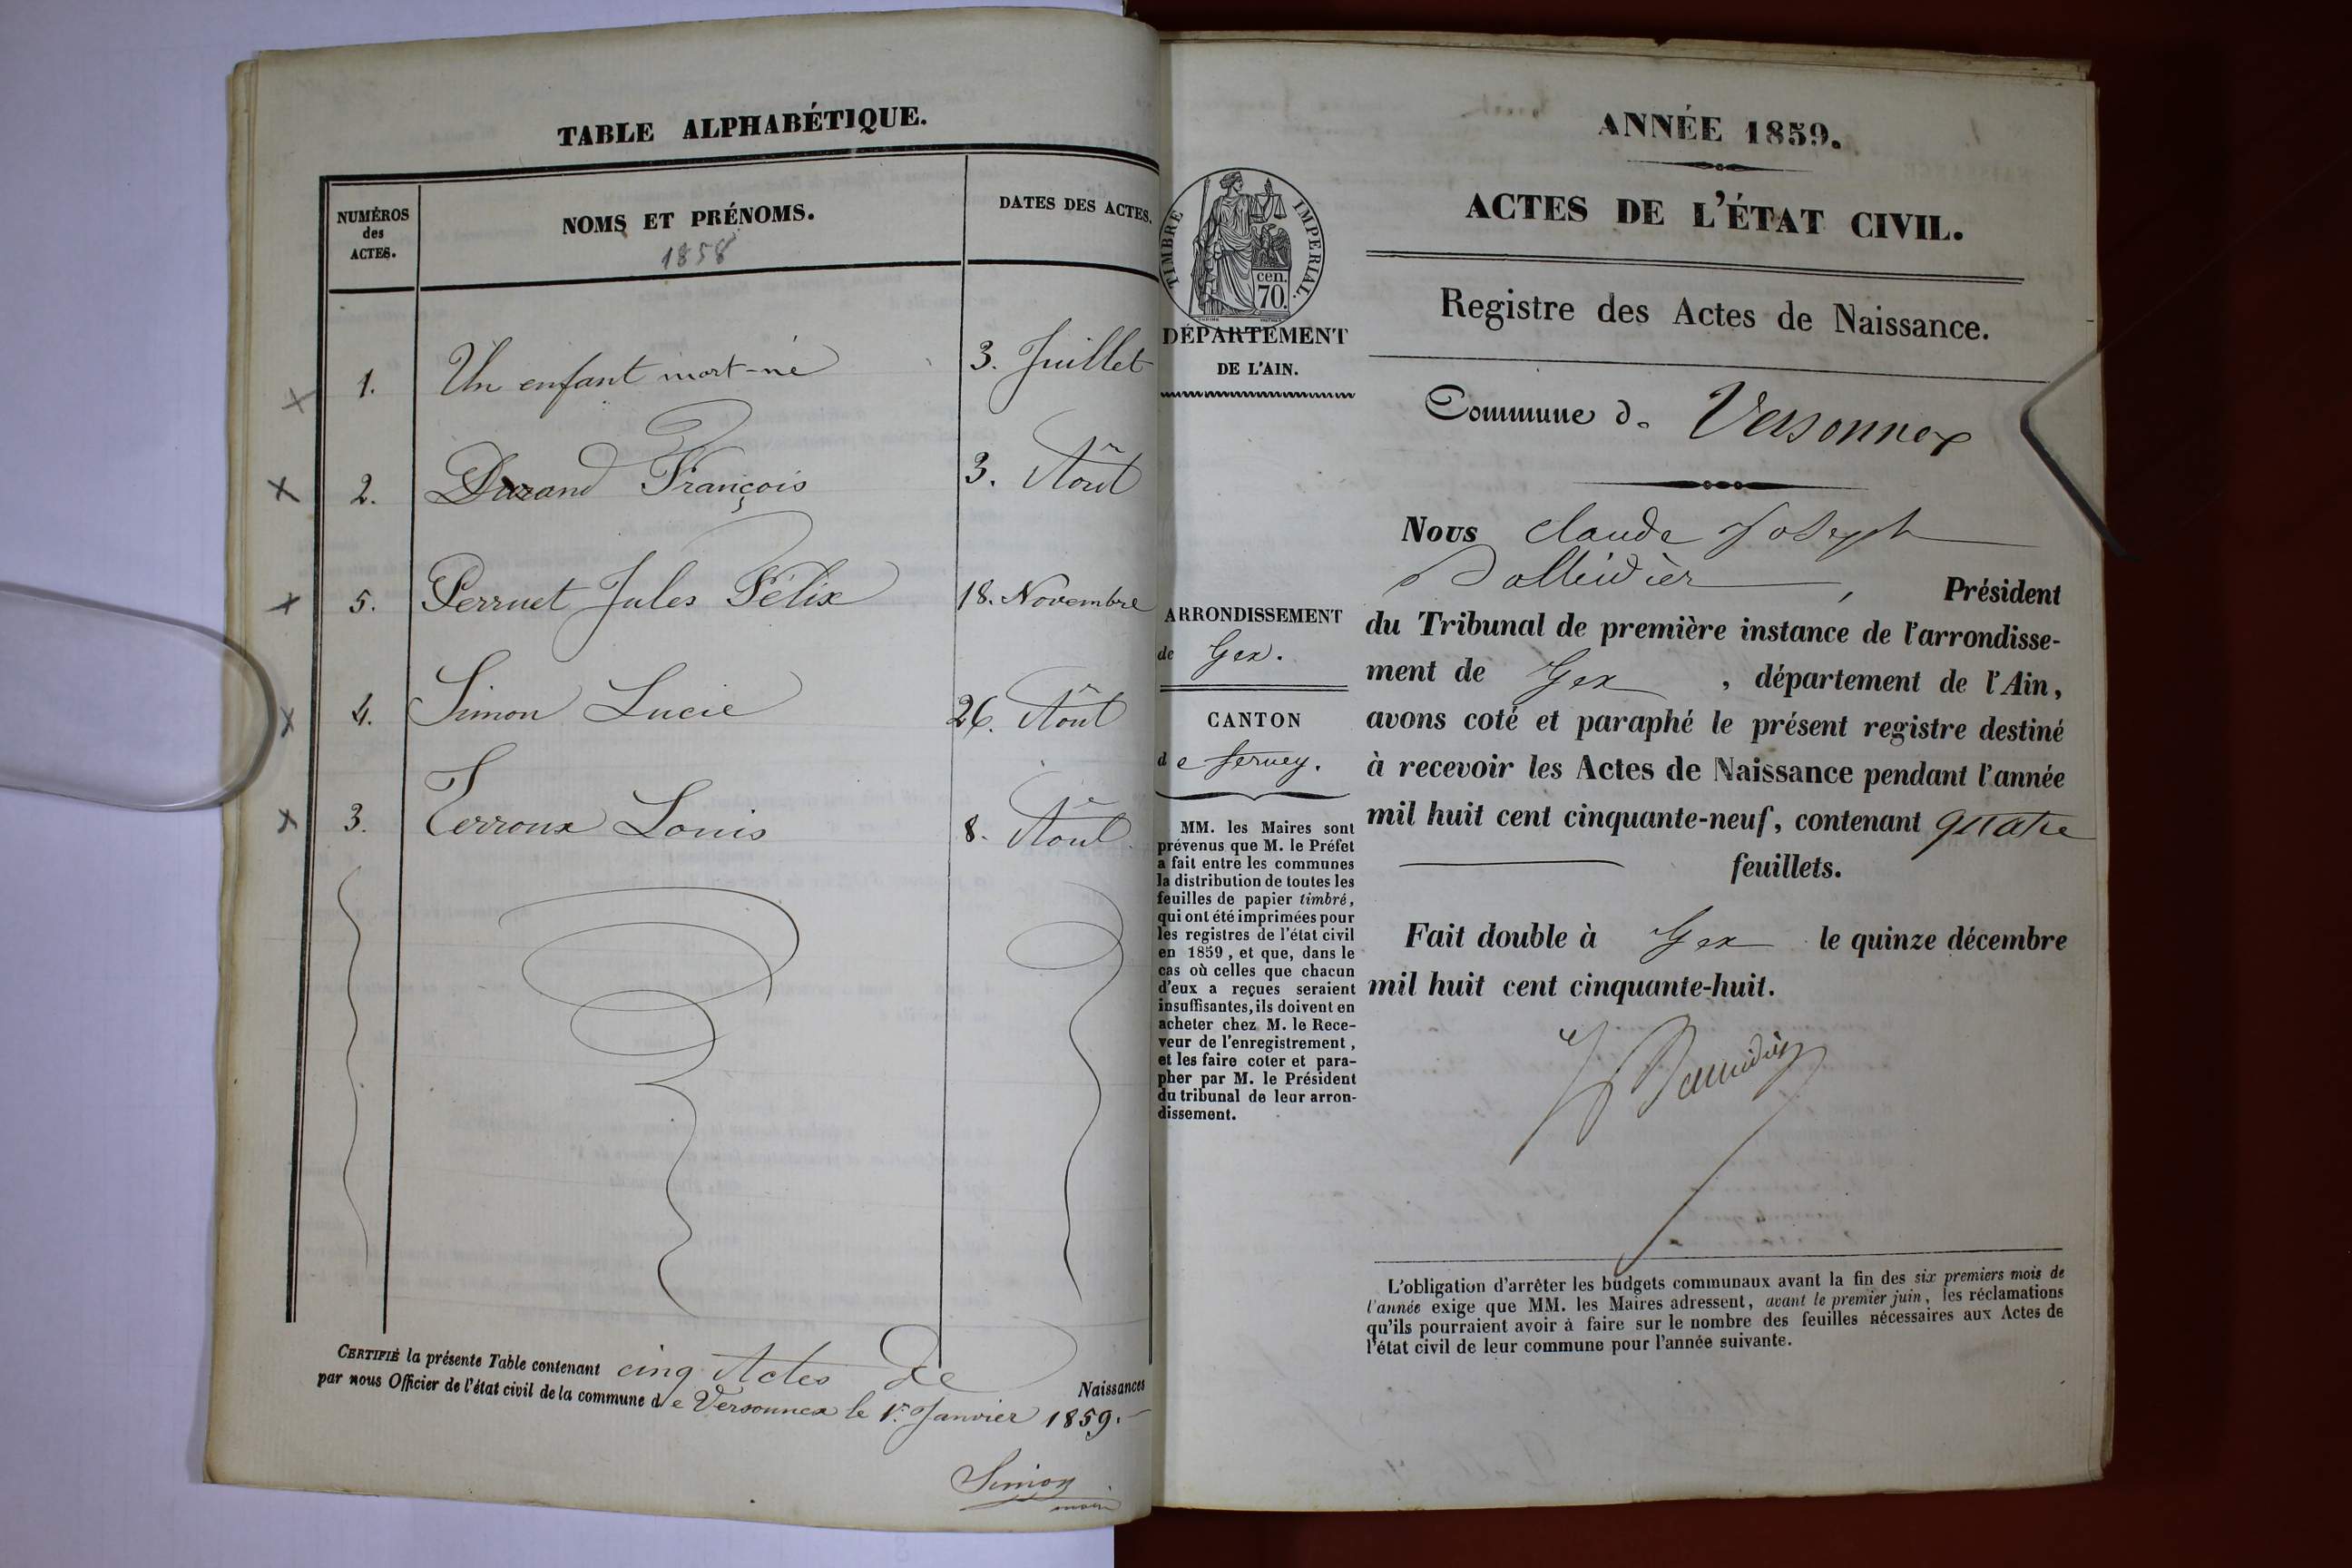 TABLE ALPHABÉTIQUE.
NUMÉROS
des
ACTES.
NOMS ET PRÉNOMS.
1858
DATES DES ACTES.
1. Un enfant mort-né 3. Juillet
2. Durand François 3. Août
5. Perruet Jules Félix 18. Novembre
4. Simon Lucie 26. Août
3. Terroux Louis 8. Août
CERTIFIÉ la présente Table contenant cinq Actes de Naissances
par nous Officier de l'état civil de la commune de Versonnex le 1er Janvier 1859.
Simon
maire
TIMBRE IMPERIAL.
cen.
70.
DÉPARTEMENT
DE L'AIN.
ARRONDISSEMENT
de Gex.
CANTON
de Ferney.
MM. les Maires sont
prévenus que M. le Préfet
a fait entre les communes
la distribution de toutes les
feuilles de papier timbré,
qui ont été imprimées pour
les registres de l'état civil
en 1859, et que, dans le
cas où celles que chacun
d'eux a reçues seraient
insuffisantes, ils doivent en
acheter chez M. le Rece-
veur de l'enregistrement,
et les faire coter et para-
pher par M. le Président
du tribunal de leur arron-
dissement.
ANNÉE 1859.
ACTES DE L'ÉTAT CIVIL.
Registre des Actes de Naissance.
Commune de Versonnex
Nous Claude Joseph
, Président
du Tribunal de première instance de l'arrondisse-
ment de Gex, département de l'Ain,
avons coté et paraphé le présent registre destiné
à recevoir les Actes de Naissance pendant l'année
mil huit cent cinquante-neuf, contenant quatre
feuillets.
Fait double à Gex le quinze décembre
mil huit cent cinquante-huit.
L'obligation d'arrêter les budgets communaux avant la fin des six premiers mois de
l'année exige que MM. les Maires adressent, avant le premier juin, les réclamations
qu'ils pourraient avoir à faire sur le nombre des feuilles nécessaires aux Actes de
l'état civil de leur commune pour l'année suivante.